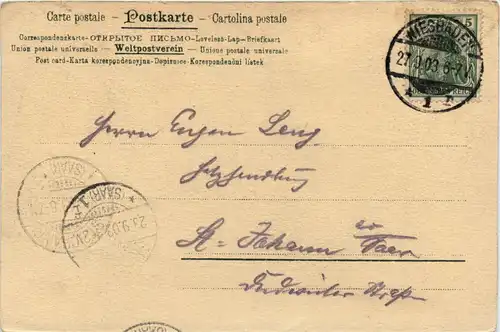 Carte postale – Postkarte – Cartolina postale
Correspondenzkarte – ОТКРЫТОЕ ПИСЬМО – Levelezö-Lap – Brief kaart
Union postale universelle – Weltpostverein – Unione postale universale
Post card – Karta korespondencyjna – Dopisnice – Korespondendni listek
WIESBADEN
27.9.03 6-7
1
5
Herrn Eugen
Holzhandlung
St. Johann a/ Saar
(SAAR) 1